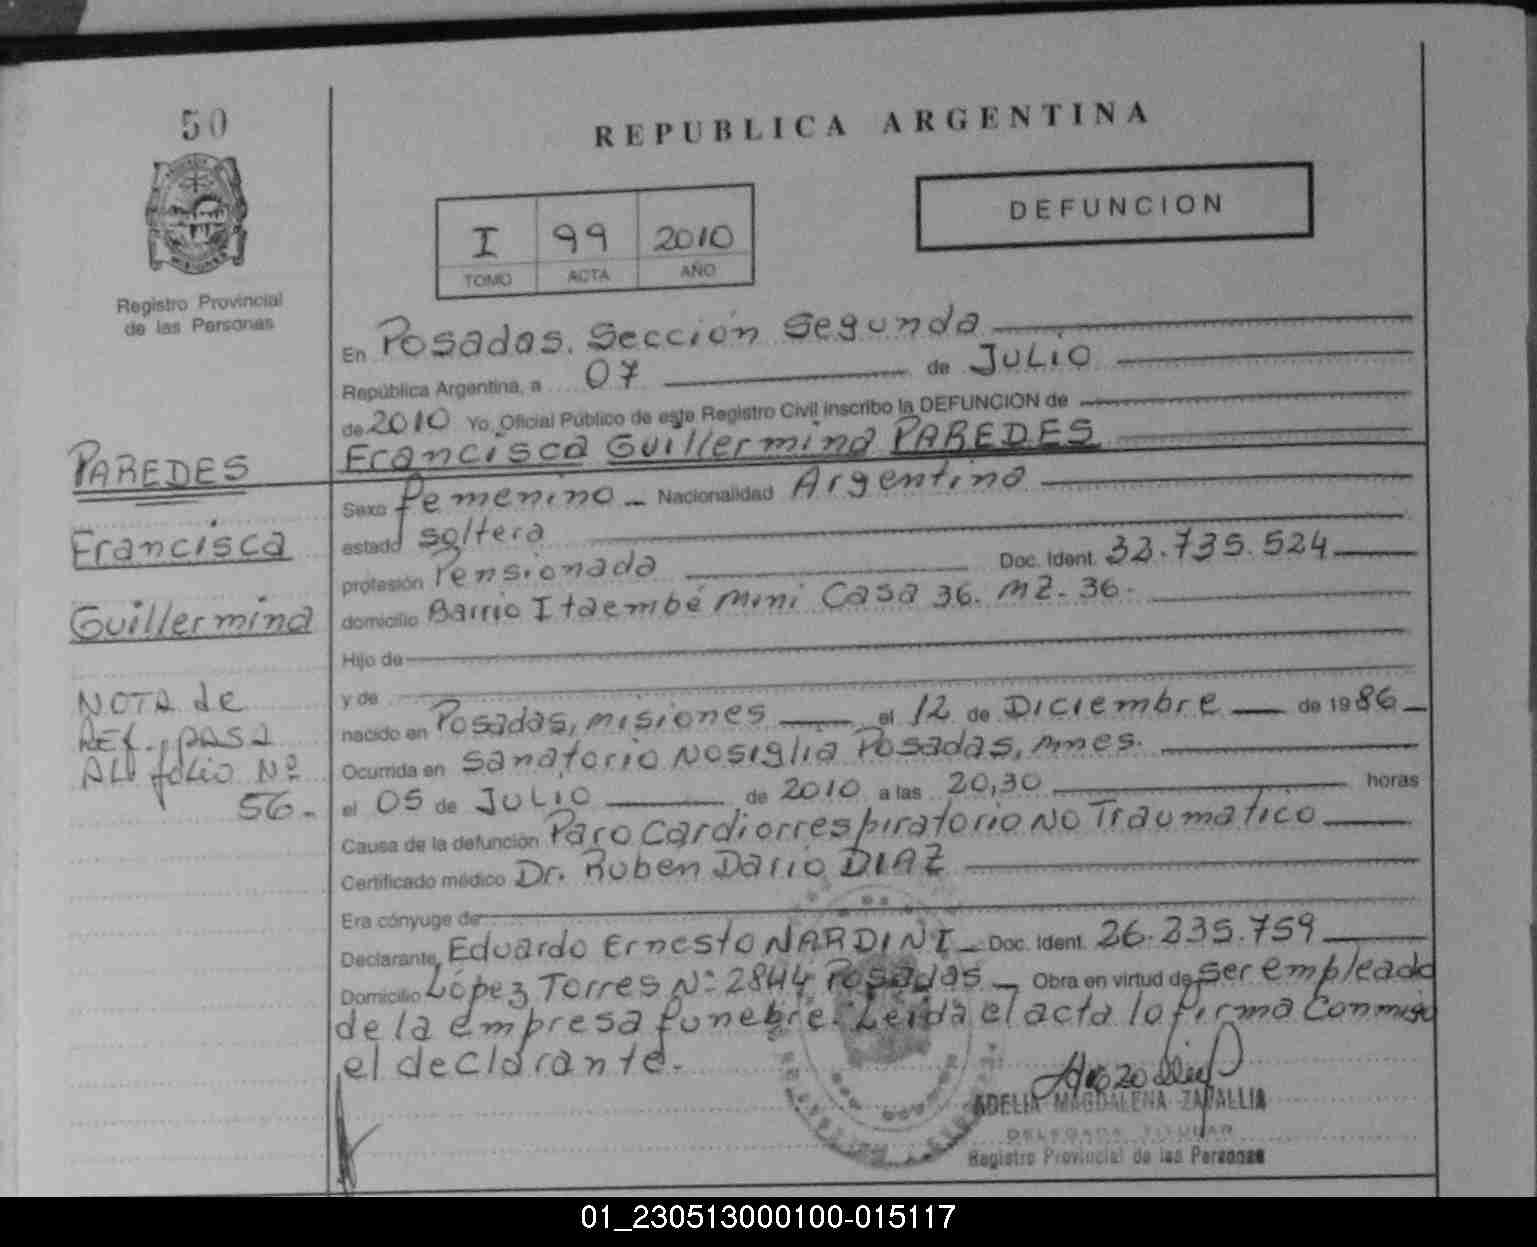 50
REPUBLICA ARGENTINA
I 99 2010
TOMO ACTA AÑO
DEFUNCION
Registro Provincial
de las Personas
En Posadas. Sección Segunda
República Argentina, a 07 de JULIO
de 2010 Yo, Oficial Público de este Registro Civil inscribo la DEFUNCION de
Francisca Guillermina PAREDES
PAREDES
Francisca
Guillermina
NOTA de
REF. pasa
AL folio Nº
56.-
Sexo femenino - Nacionalidad Argentina
estado soltera
profesión Pensionada Doc. Ident. 32.735.524
domicilio Barrio Itaembé Mini Casa 36. MZ. 36.
Hijo de
y de
nacido en Posadas, Misiones el 12 de Diciembre de 1986
Ocurrida en Sanatorio Nosiglia Posadas, Mnes.
el 05 de JULIO de 2010 a las 20,30 horas
Causa de la defunción Paro Cardiorrespiratorio NO Traumático
Certificado médico Dr. Ruben Dario DIAZ
Era cónyuge de
Declarante Eduardo Ernesto NARDINI - Doc. Ident. 26.235.759
Domicilio López Torres Nº 2844 Posadas - Obra en virtud de ser empleado
de la empresa funebre. Leida el acta lo firma Conmigo
el declarante.
ADELIA MAGDALENA ZAPALLIA
DELEGADA TITULAR
Registro Provincial de las Personas
01_230513000100-015117